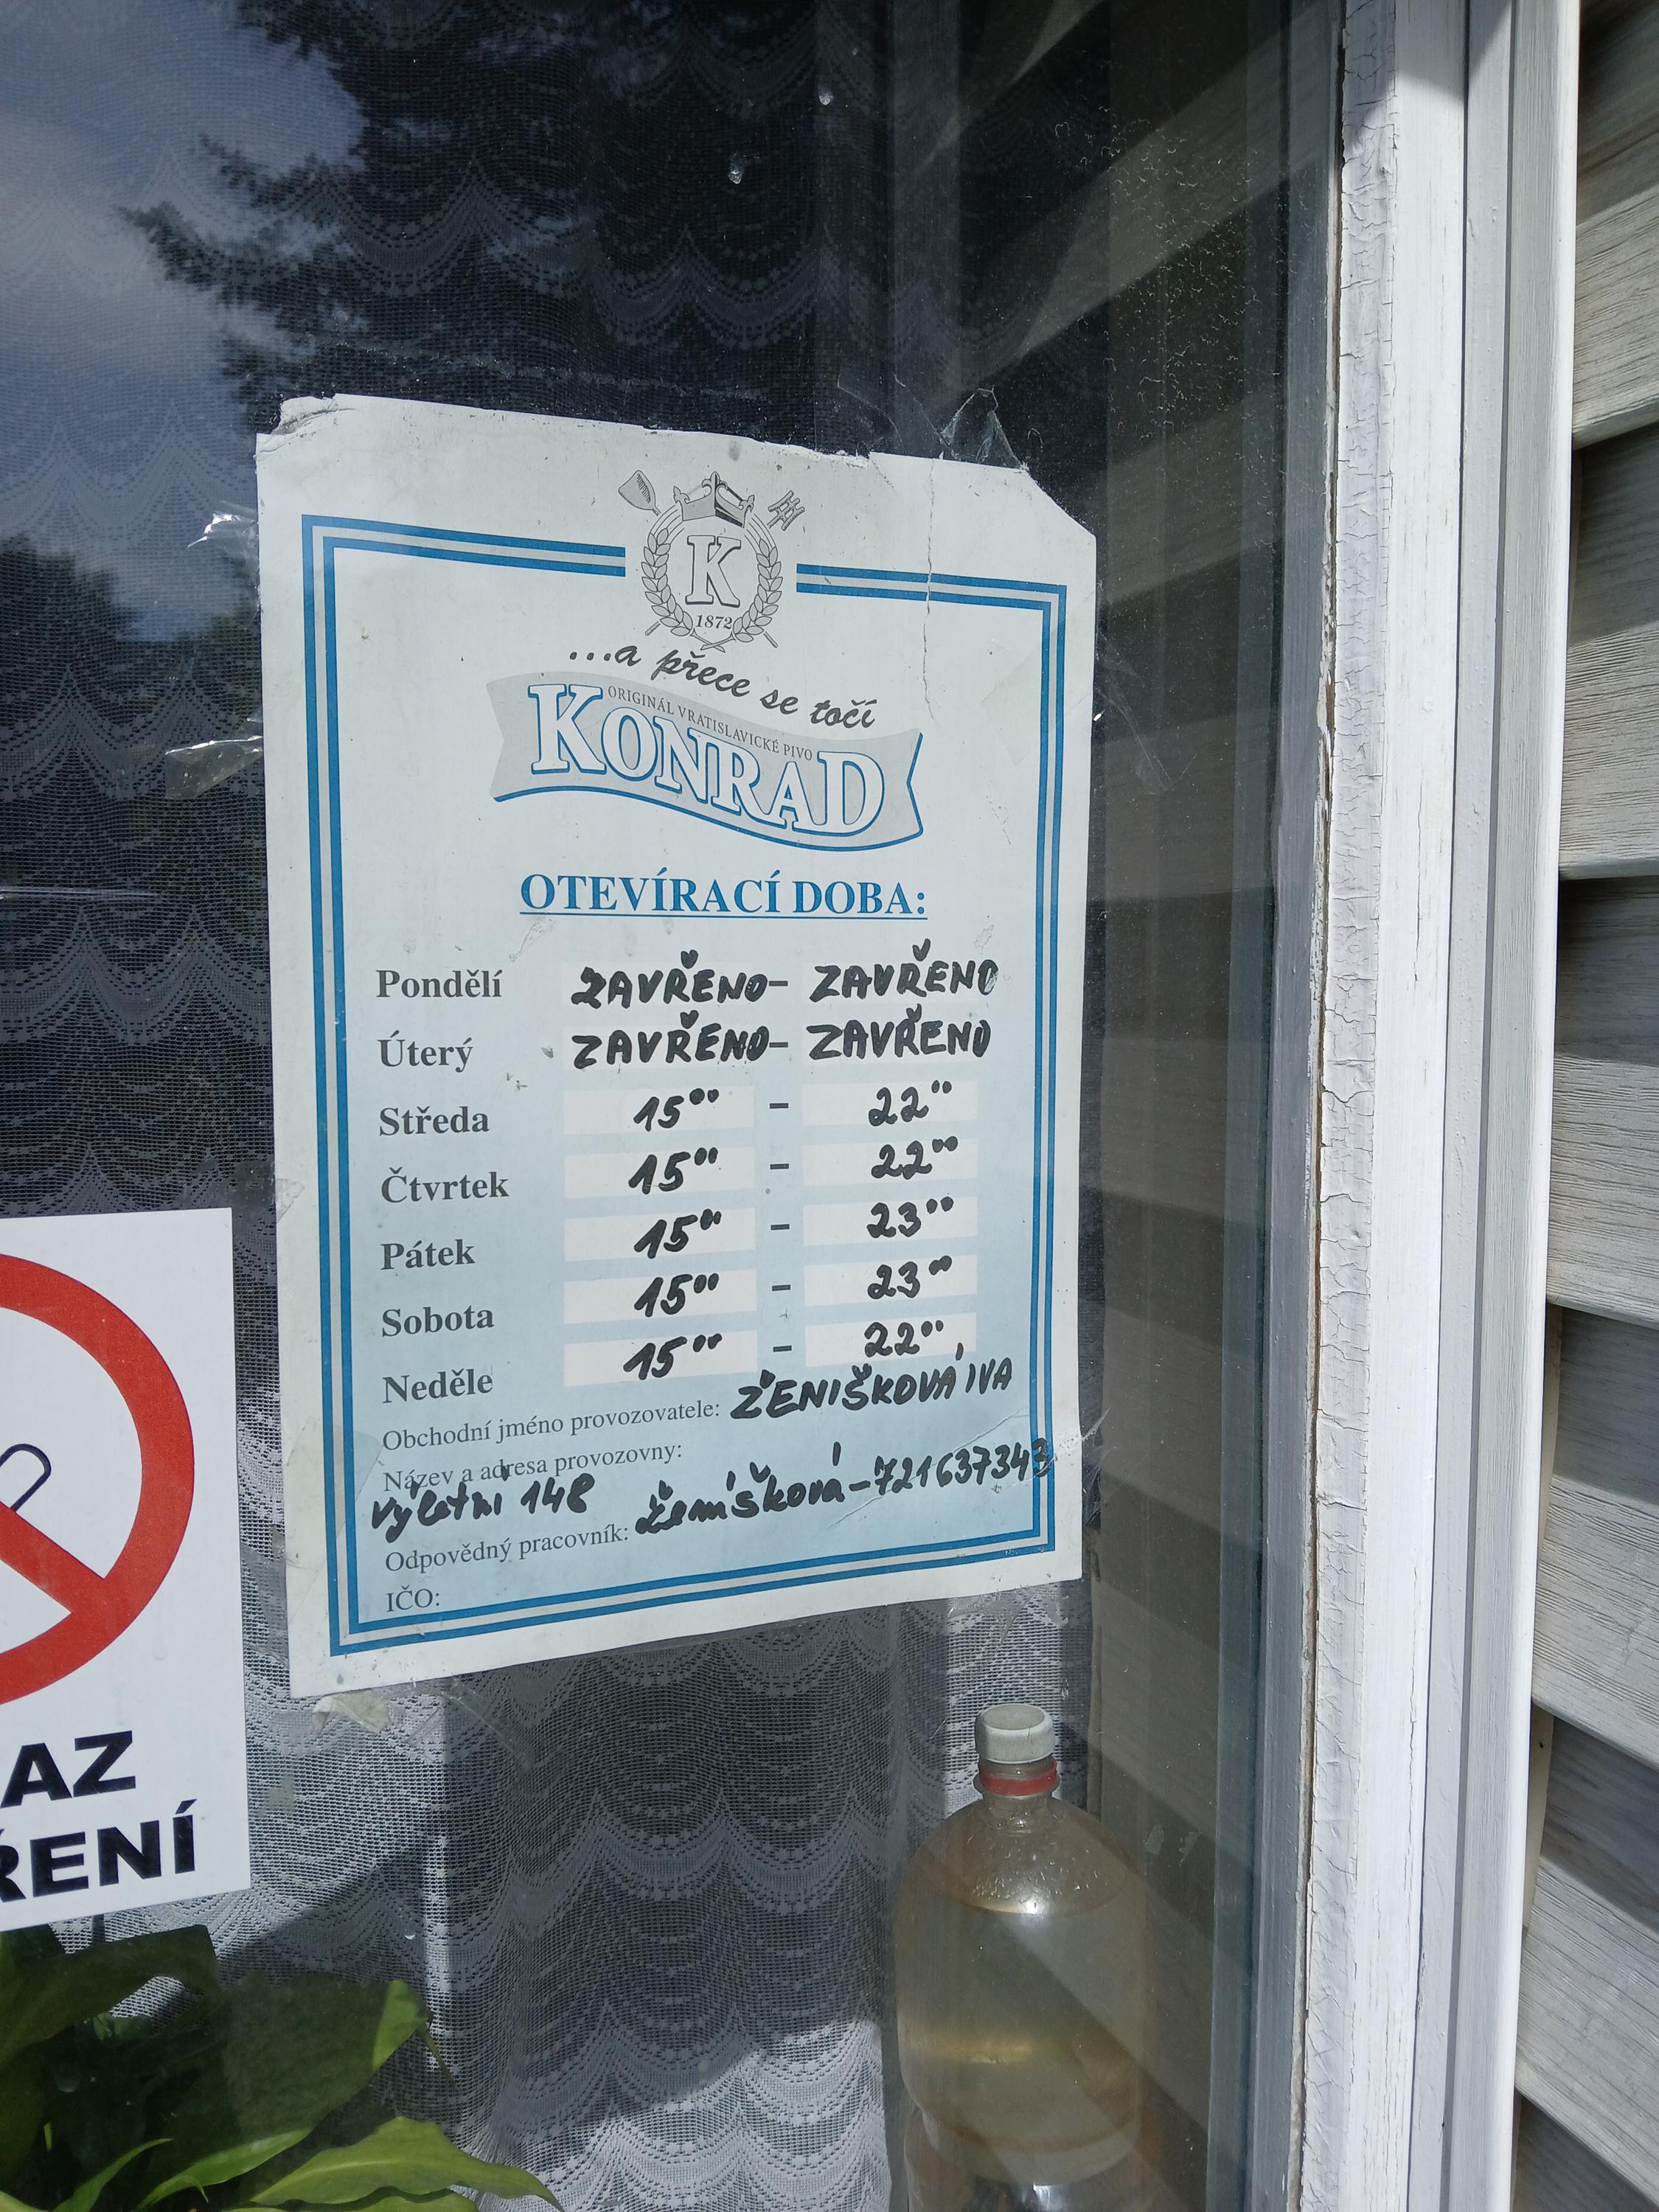 K
1872
...a přece se točí
ORIGINÁL VRATISLAVICKÉ PIVO
KONRAD
OTEVÍRACÍ DOBA:
Pondělí ZAVŘENO - ZAVŘENO
Úterý ZAVŘENO - ZAVŘENO
Středa 15°° - 22°°
Čtvrtek 15°° - 22°°
Pátek 15°° - 23°°
Sobota 15°° - 23°°
Neděle 15°° - 22°°
Obchodní jméno provozovatele: ŽENIŠKOVÁ IVA
Název a adresa provozovny:
Výletní 148
Odpovědný pracovník: Ženíšková - 721637343
IČO:
AZ
ŘENÍ